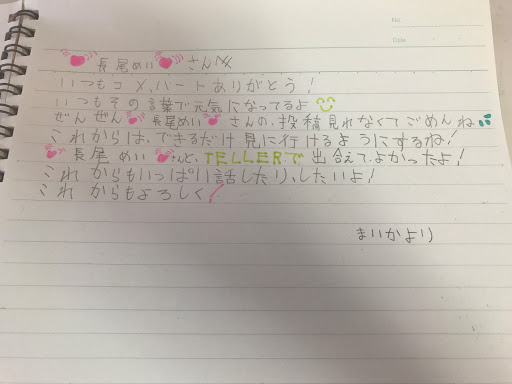 No.
Date
長尾めい さんへ
いつもコメ、ハートありがとう!
いつもその言葉で元気になってるよ
ぜんぜん 長尾めい さんの、投稿見れなくてごめんね
これからは、できるだけ見に行けるようにするね!
長尾 めい さんと、TELLERで出会えてよかったよ!
これからもいっぱい話したり、したいよ!
これからもよろしく!
まいかより